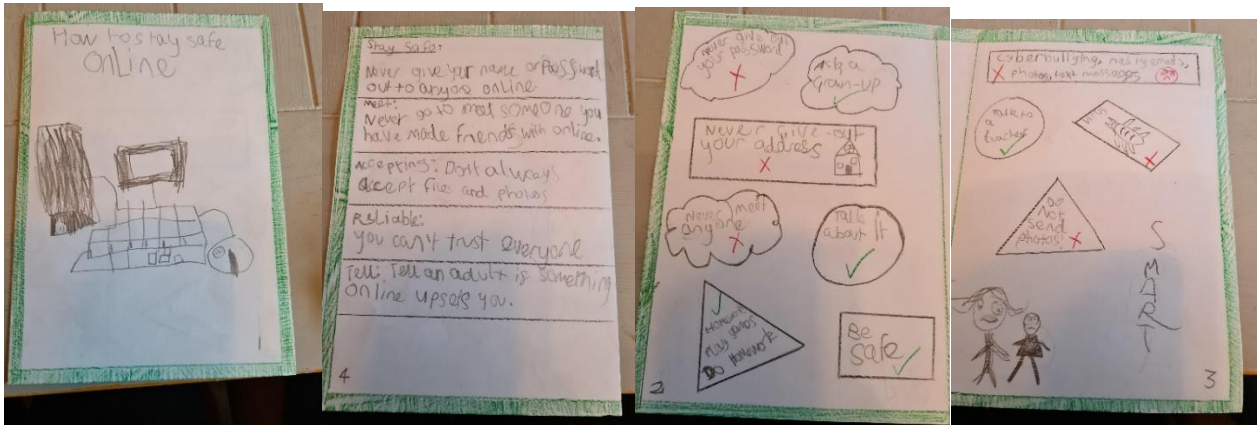 How to stay safe
Online
Stay safe:
Never give your name or Password
out to anyone online
meet:
Never go to meet someone you
have made friends with online.
Accepting: Don't always
accept files and photos
Reliable:
you can't trust everyone
Tell: Tell an adult is something
Online upsets you.
4
never give out
your password
Ask a
Grown-up
Never Give-out
your address
Never meet
anyone
Talk
about It
Homework
Play games
Do Homework
Be
safe
2
Cyberbullying, nasty emails,
photos, text messages
Talk to
a
teacher
Virus
Do
not
send
photos!
S
M
A
R
T
3